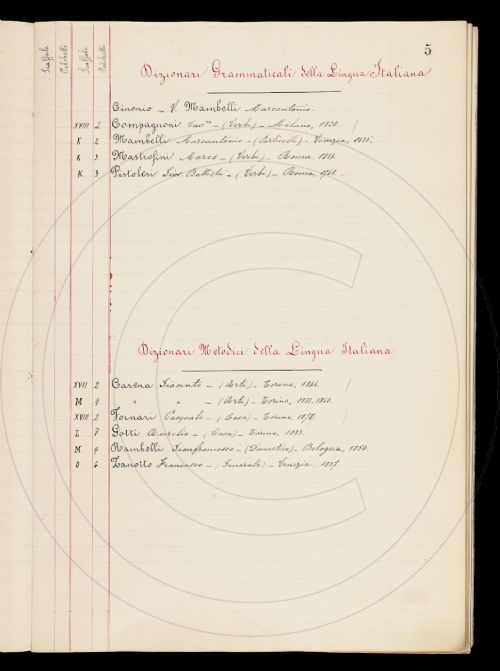 5
Scaffale Palchetto Scaffale Palchetto
Dizionari Grammaticali della Lingua Italiana
Cinonio - V. Mambelli Marcantonio.
XVIII 2 Compagnoni Cav.re - (Verbi) - Milano, 1830. /
K 2 Mambelli Marcantonio - (Particelle) - Venezia, 1835.
K 3 Mastrofini Marco - (Verbi) - Roma 1814.
K 3 Pistolesi Giov Battista - (Verbi) - Roma, 1761.
Dizionari Metodici della Lingua Italiana
XVII 2 Carena Giacinto - (Arti) - Torino, 1846. /
M 9 " " - (Arti) - Torino, 1851-1860.
XVIII 2 Fornari Pasquale - (Casa) - Torino, 1878. /
L 7 Gotti Aurelio - (Casa) - Torino, 1883.
M 9 Rambelli Gianfrancesco - (Domestico) - Bologna, 1850.
O 6 Zanotto Francesco - (Generale) - Venezia. 1857.